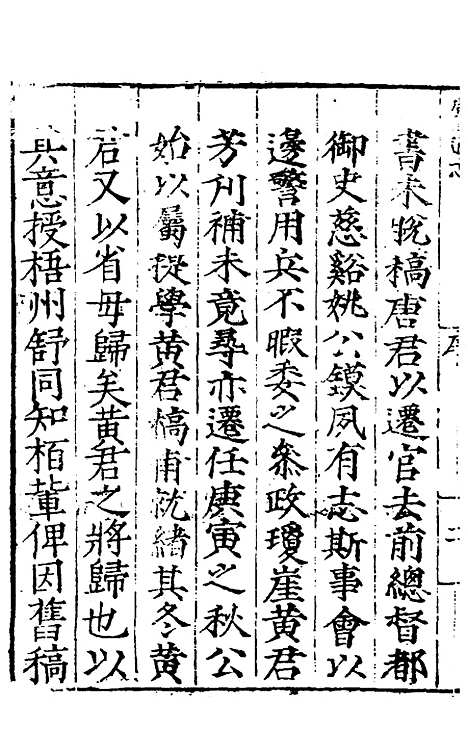 書未脫槁唐君以遷官去前總督都
御史慈谿姚公鏌夙有志斯事會以
邊警用兵不暇委之叅政瓊崖黃君
芳刋補未竟尋亦遷任庚寅之秋公
始以屬提學黃君槁甫就緒其冬黃
君又以省母歸矣黃君之將歸也以
其意授梧州舒同知栢輩俾因舊稿